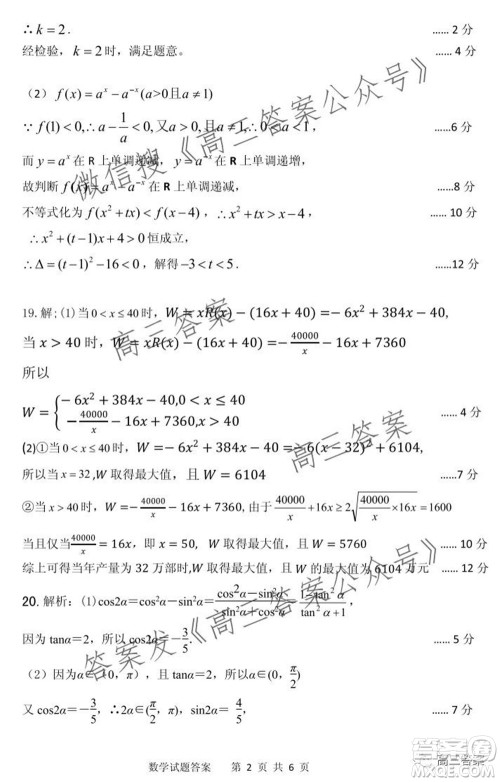 ∴ k=2. ...... 2 分
经检验，k=2时，满足题意。 ...... 4 分
（2） f(x)=a^x-a^{-x}(a>0且a≠1)
∵ f(1)<0,∴a-1/a<0,又a>0,且a≠1,∴0<a<1， ......6分
而 y=a^x 在 R 上单调递减，y=a^{-x} 在 R 上单调递增，
故判断 f(x)=a^x-a^{-x} 在 R 上单调递减， ......8分
不等式化为 f(x²+tx)<f(x-4)，∴x²+tx>x-4， ...... 10 分
∴x²+(t-1)x+4>0 恒成立，
∴Δ=(t-1)²-16<0，解得 -3<t<5. ......12分
19.解；(1)当 0<x≤40 时，W=xR(x)-(16x+40)=-6x²+384x-40,
当 x>40 时，W=xR(x)-(16x+40)=-40000/x-16x+7360
所以
W={-6x²+384x-40,0<x≤40
-40000/x-16x+7360,x>40 ...... 4 分
(2)①当 0<x≤40 时，W=-6x²+384x-40=-6(x-32)²+6104,
所以当 x=32 ,W 取得最大值，且 W=6104 ......7 分
②当 x>40 时，W=-40000/x-16x+7360, 由于 40000/x+16x≥2√(40000/x×16x)=1600
当且仅当40000/x=16x，即 x=50，W 取得最大值，且 W=5760 ...... 10 分
综上可得当年产量为 32 万部时，W 取得最大值，且 W 的最大值为 6104 万元 ...... 12 分
20. 解析：(1)cos2α=cos²α-sin²α=(cos²α-sin²α)/(sin²α+cos²α)=(1-tan²α)/(tan²α+1),
因为 tanα=2，所以 cos2α=-3/5. ...... 5 分
（2）因为α∈(0，π)，且 tanα=2，所以α∈(0, π/2)
又 cos2α=-3/5，∴2α∈(π/2,π)，sin2α=4/5, ......7 分
数学试题答案 第 2 页 共 6 页
微信搜《高三答案公众号》
高三答案
高三答案
答案发《高三答案公众号》
高三答案